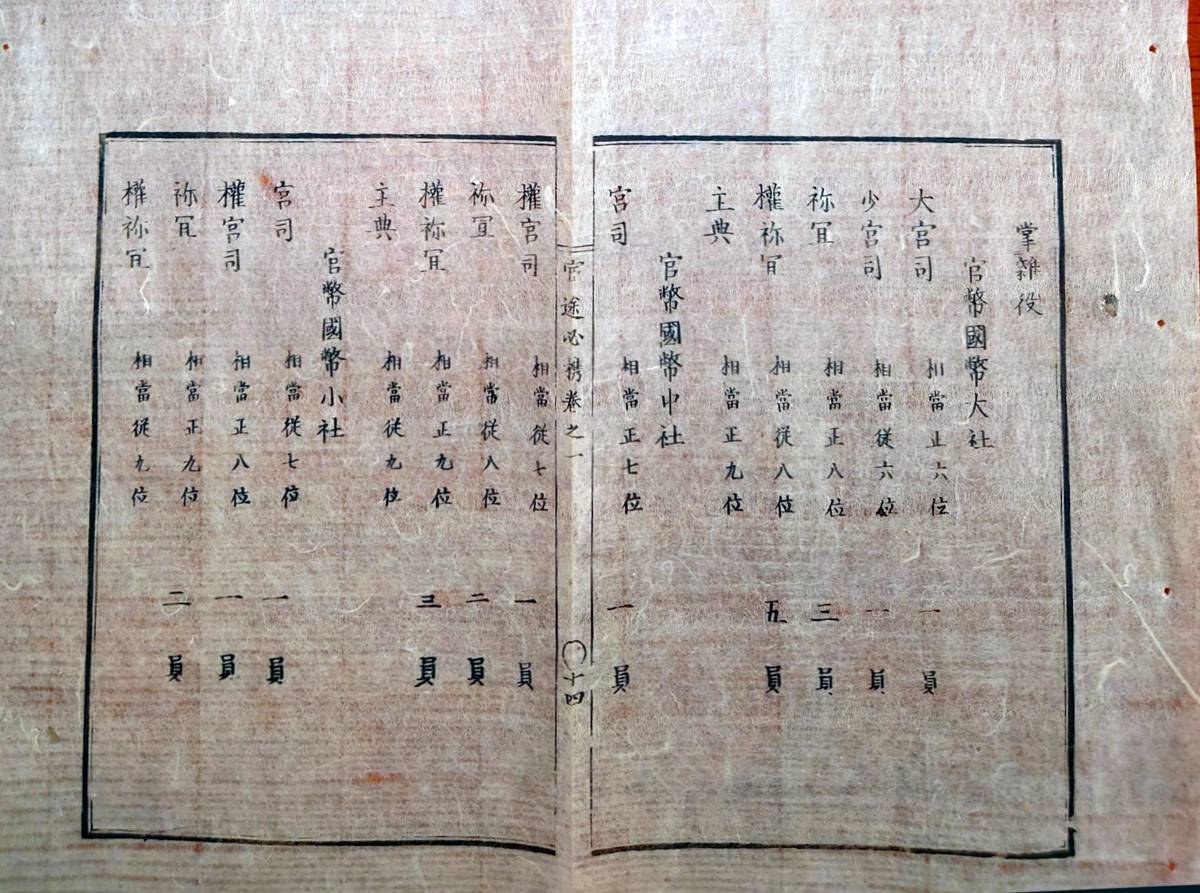 掌雜役
官幣國幣大社
大宮司 相當正六位 一員
少宮司 相當從六位 一員
祢宜 相當正八位 三員
權祢宜 相當從八位 五員
主典 相當正九位
官幣國幣中社
宮司 相當正七位 一員
官途必携卷之一 〇十四
權宮司 相當從七位 一員
祢宜 相當從八位 二員
權祢宜 相當正九位 三員
主典 相當從九位
官幣國幣小社
宮司 相當從七位 一員
權宮司 相當正八位 一員
祢宜 相當正九位 二員
權祢宜 相當從九位